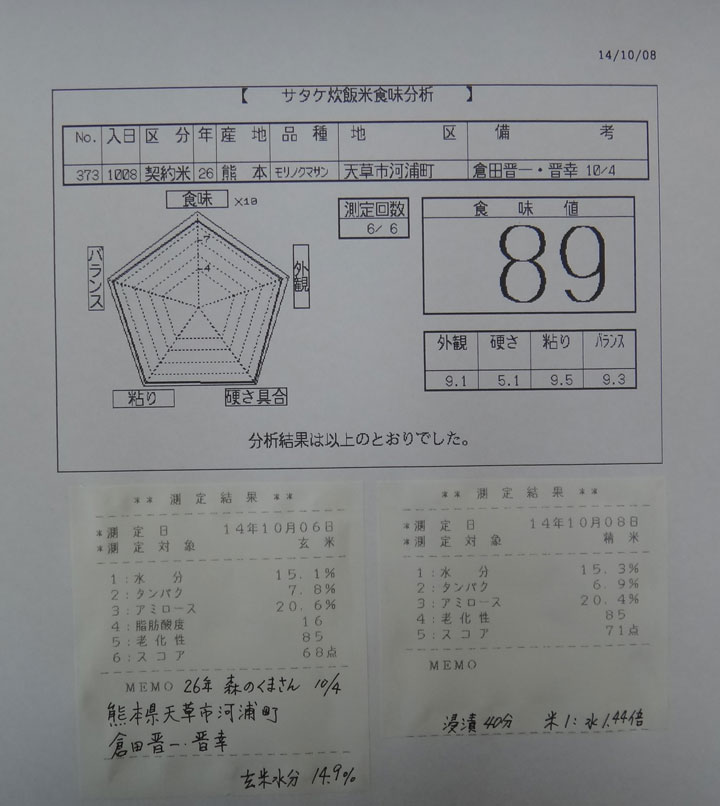 14/10/08
【 サタケ炊飯米食味分析 】
No. 入日 区分 年 産地 品種 地区 備考
373 1008 契約米 26 熊本 モリノクマサン 天草市河浦町 倉田晋一・晋幸 10/4
食味 ×10
7
4
バランス
外観
粘り
硬さ具合
測定回数
6/ 6
食味値
89
外観 硬さ 粘り バランス
9.1 5.1 9.5 9.3
分析結果は以上のとおりでした。
** 測定結果 **
*測定日 14年10月06日
*測定対象 玄米
1:水分 15.1%
2:タンパク 7.8%
3:アミロース 20.6%
4:脂肪酸度 16
5:老化性 85
6:スコア 68点
MEMO 26年 森のくまさん 10/4
熊本県天草市河浦町
倉田晋一・晋幸
玄米水分 14.9%
** 測定結果 **
*測定日 14年10月08日
*測定対象 精米
1:水分 15.3%
2:タンパク 6.9%
3:アミロース 20.4%
4:老化性 85
5:スコア 71点
MEMO
浸漬40分 米1:水1.44倍